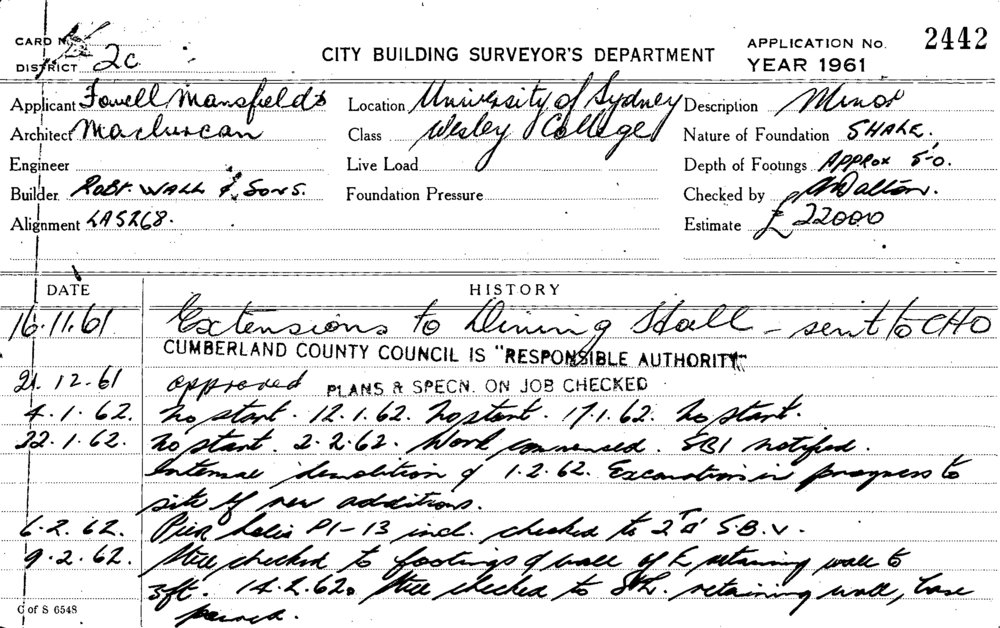 CARD No.
DISTRICT 2C
CITY BUILDING SURVEYOR'S DEPARTMENT
APPLICATION No. 2442
YEAR 1961
Applicant Fowell Mansfield &
Architect Maclurcan
Engineer
Builder Robt. Wall & Sons.
Alignment LA5268.
Location University of Sydney
Class Wesley College
Live Load
Foundation Pressure
Description Minor
Nature of Foundation SHALE.
Depth of Footings Approx 5'0.
Checked by Dalton.
Estimate £22000
DATE HISTORY
16.11.61 Extensions to Dining Hall - sent to CHO
CUMBERLAND COUNTY COUNCIL IS "RESPONSIBLE AUTHORITY"
21.12.61 approved PLANS & SPECN. ON JOB CHECKED
4.1.62. No start. 12.1.62. No start. 17.1.62. No start.
22.1.62. No start. 2.2.62. Work commenced. notified.
Internal demolition 1.2.62. Excavation in progress to
site of new additions.
6.2.62. Pier holes P1-13 incl. checked to S.B.V.
9.2.62. Steel checked to footings & wall of E retaining wall to
3ft. 14.2.62. Steel checked to retaining wall, base
C of S 6548